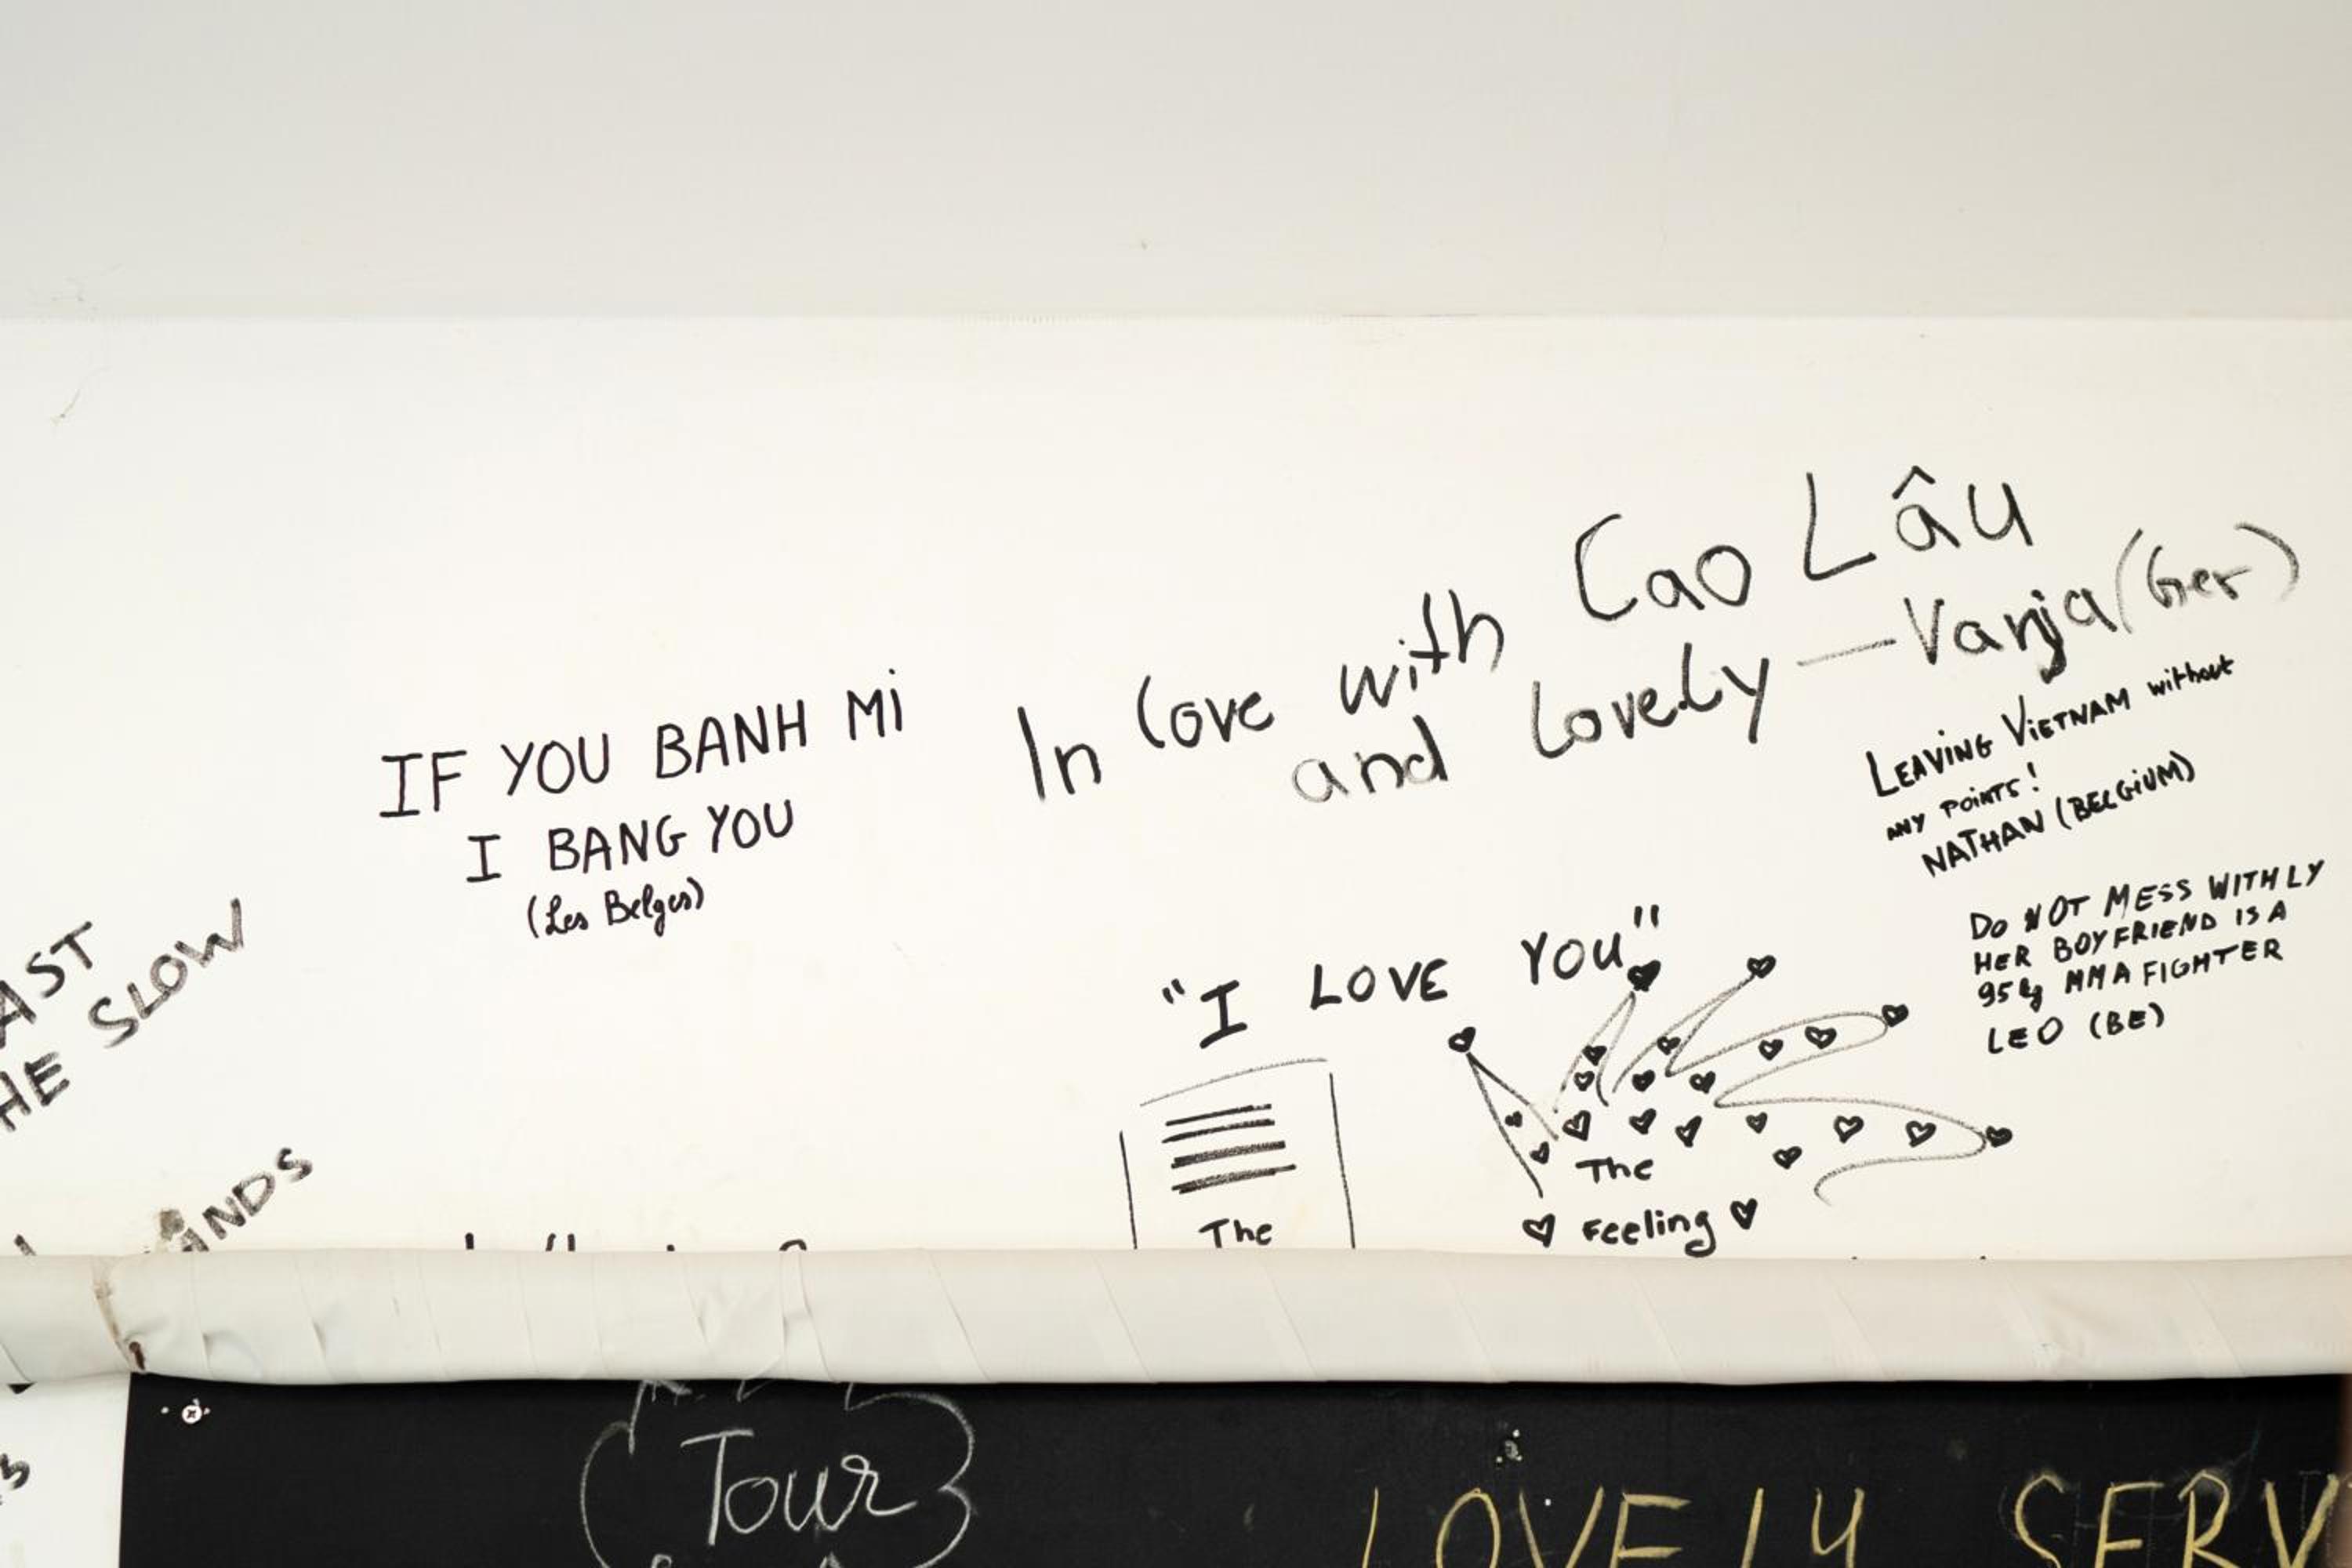 IF YOU BANH Mi
I BANG YOU
(Les Belges)
In love with Cao Lâu
and lovely — Vanja (Ger)
LEAVING VIETNAM without
ANY POINTS!
NATHAN (BELGIUM)
DO NOT MESS WITH LY
HER BOYFRIEND IS A
95 kg MMA FIGHTER
LEO (BE)
SLOW
"I LOVE YOU"
The
The
Feeling
Tour
LOVELY SERV